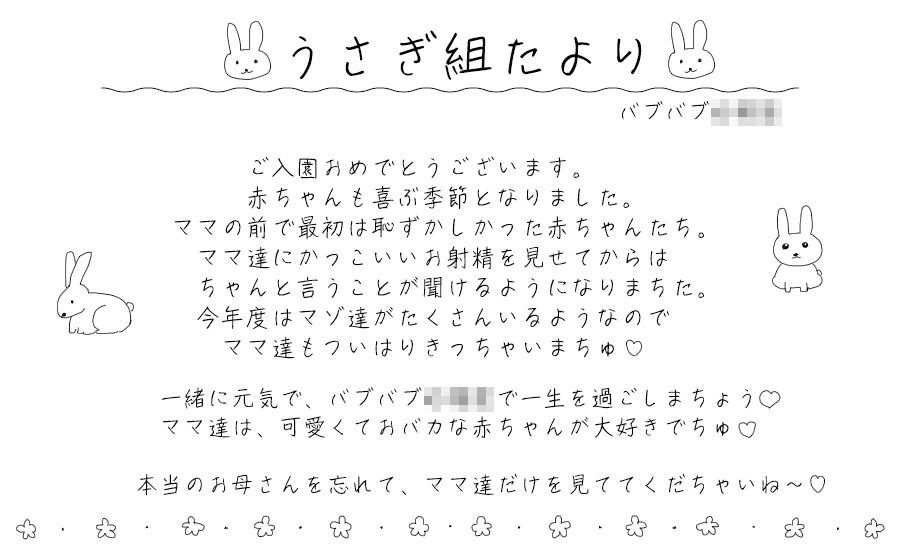 うさぎ組たより
バブバブ
ご入園おめでとうございます。
赤ちゃんも喜ぶ季節となりました。
ママの前で最初は恥ずかしかった赤ちゃんたち。
ママ達にかっこいいお射精を見せてからは
ちゃんと言うことが聞けるようになりまちた。
今年度はマゾ達がたくさんいるようなので
ママ達もついはりきっちゃいまちゅ♡
一緒に元気で、バブバブ で一生を過ごしまちょう♡
ママ達は、可愛くておバカな赤ちゃんが大好きでちゅ♡
本当のお母さんを忘れて、ママ達だけを見ててくだちゃいね～♡